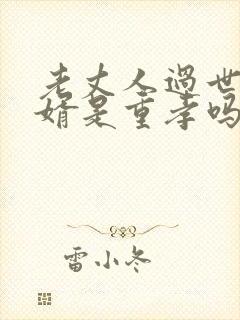 老丈人过世
婿是重孝吗
雷小冬